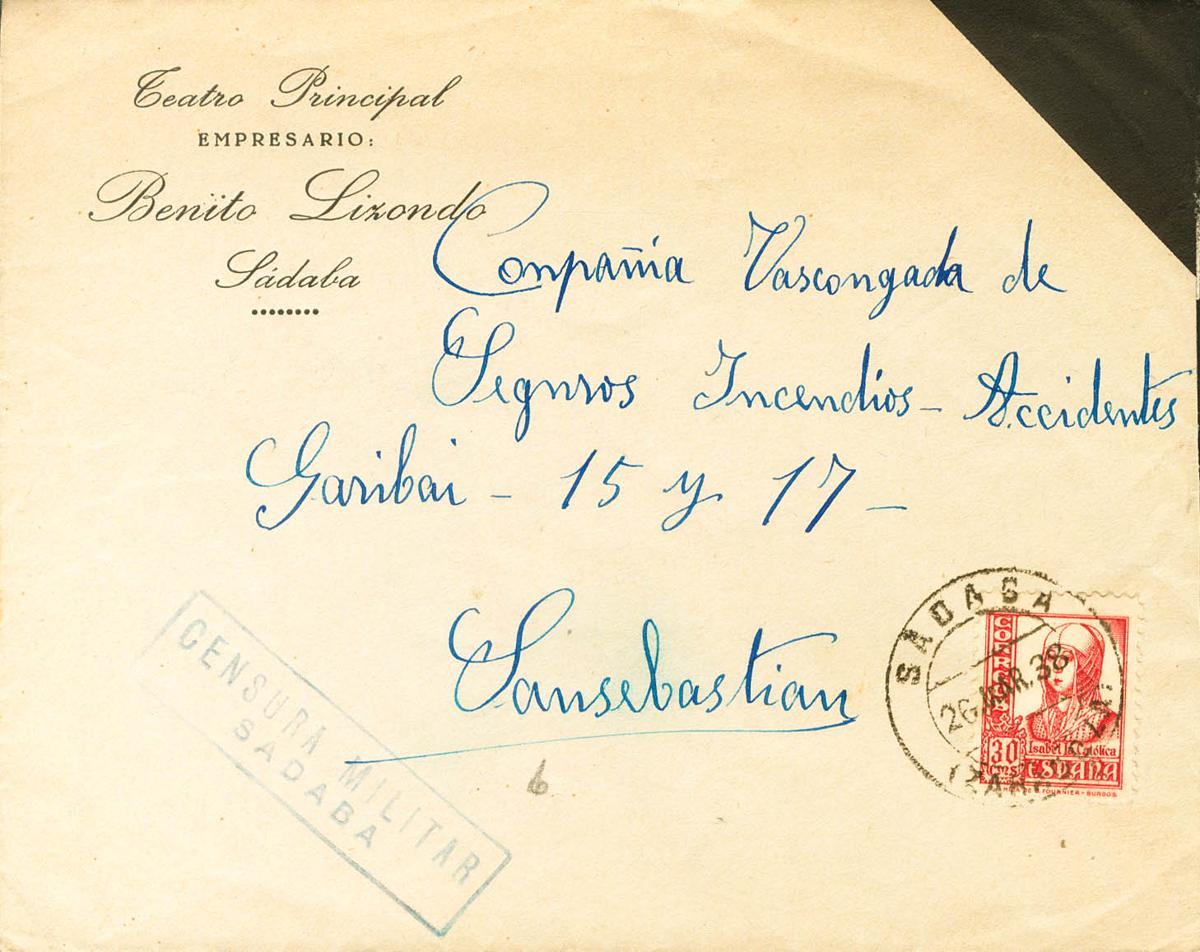 Teatro Principal
EMPRESARIO:
Benito Lizondo
Sádaba
Conpañia Vascongada de
Seguros Incendios - Accidentes
Garibai - 15 y 17 -
Sansebastian
6
CENSURA MILITAR
SADABA
SADABA
26 MAR. 38
(ZARAGOZA)
CORREOS
30
CMS
Isabel la Católica
ESPAÑA
FOURNIER - BURGOS